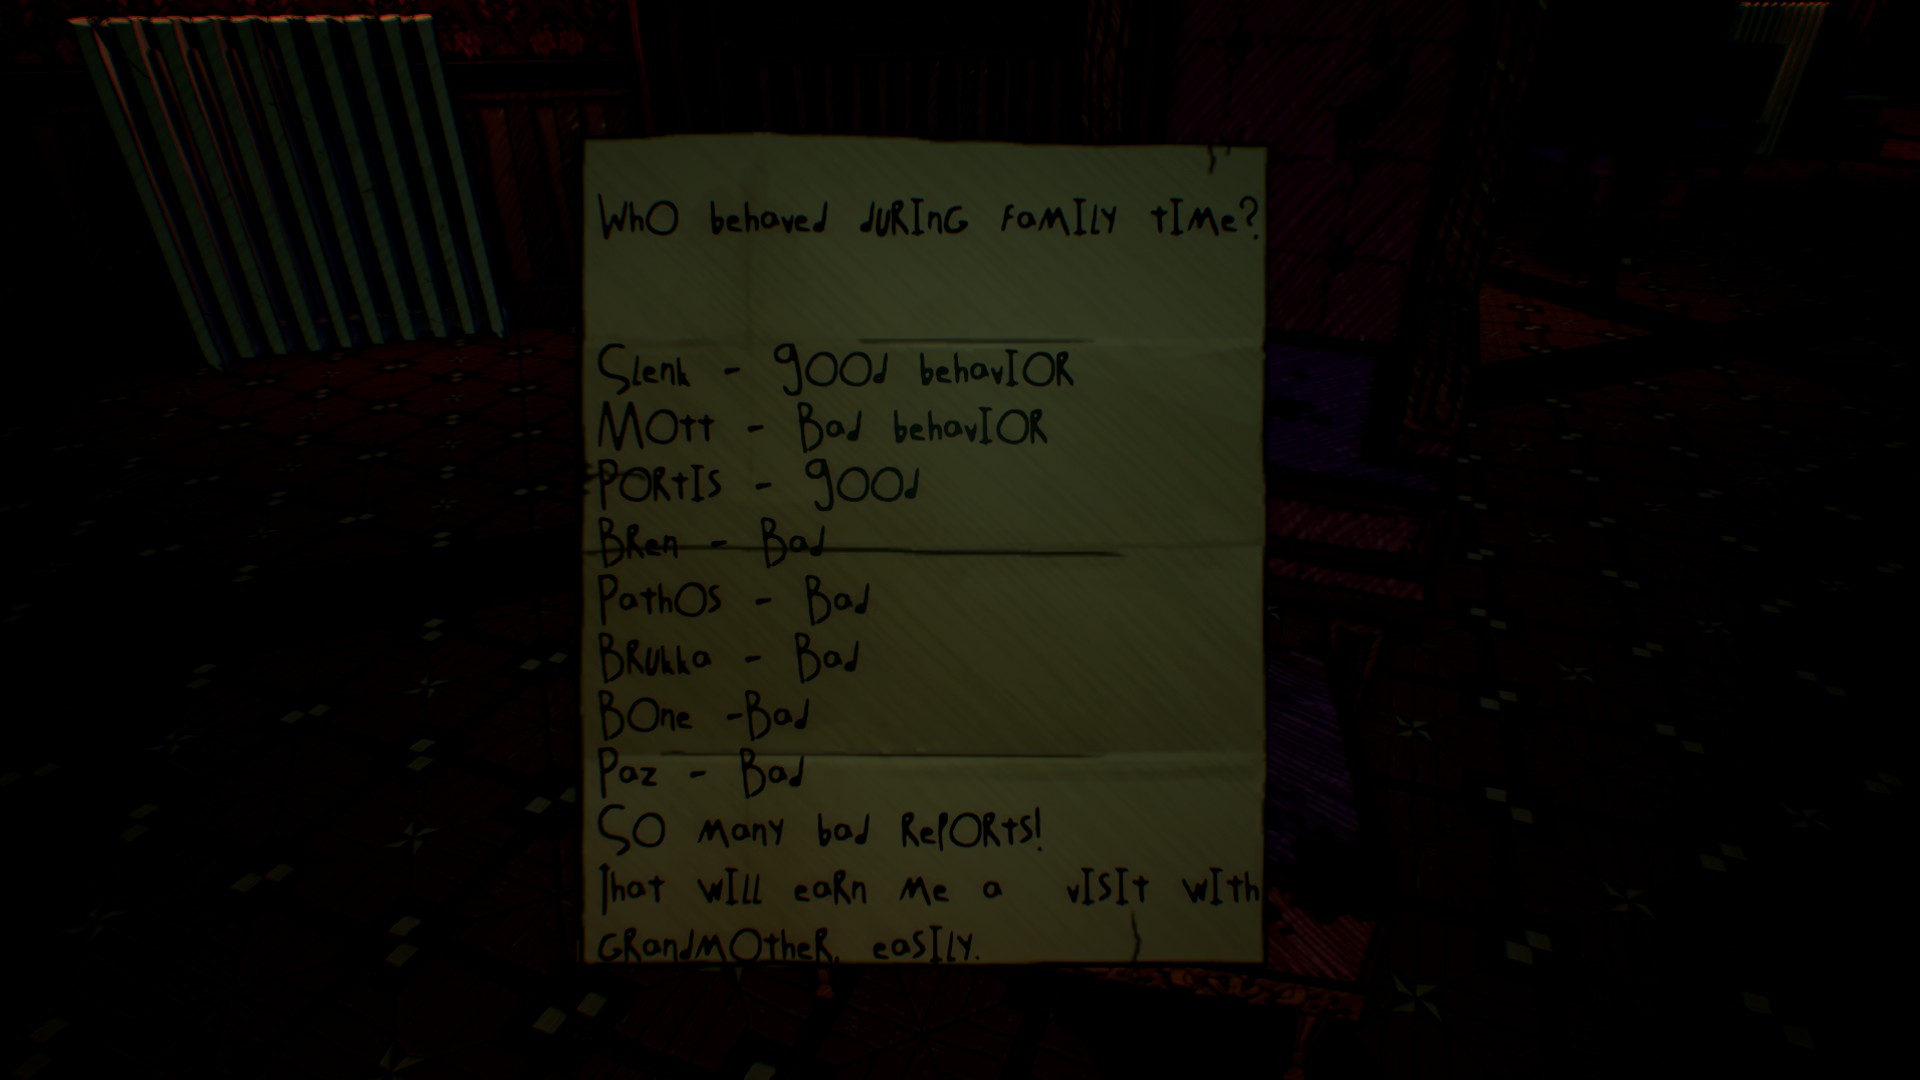 WhO behaved dURInG FaMILY tIMe?
Slenk - gOOd behavIOR
MOtt - Bad behavIOR
PORtIS - gOOd
BRen - Bad
PathOS - Bad
BRUkka - Bad
BOne -Bad
Paz - Bad
SO many bad RePORtS!
That wILL eaRn Me a vISIt wIth
GRandMOtheR, easILY.